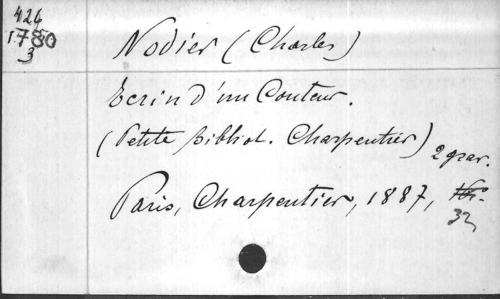 424
1780
3
Nodier (Charles)
Ecrin d'un Conteur.
(Petite Bibliot. Charpentier)
2 grav.
Paris, Charpentier, 1887,
32